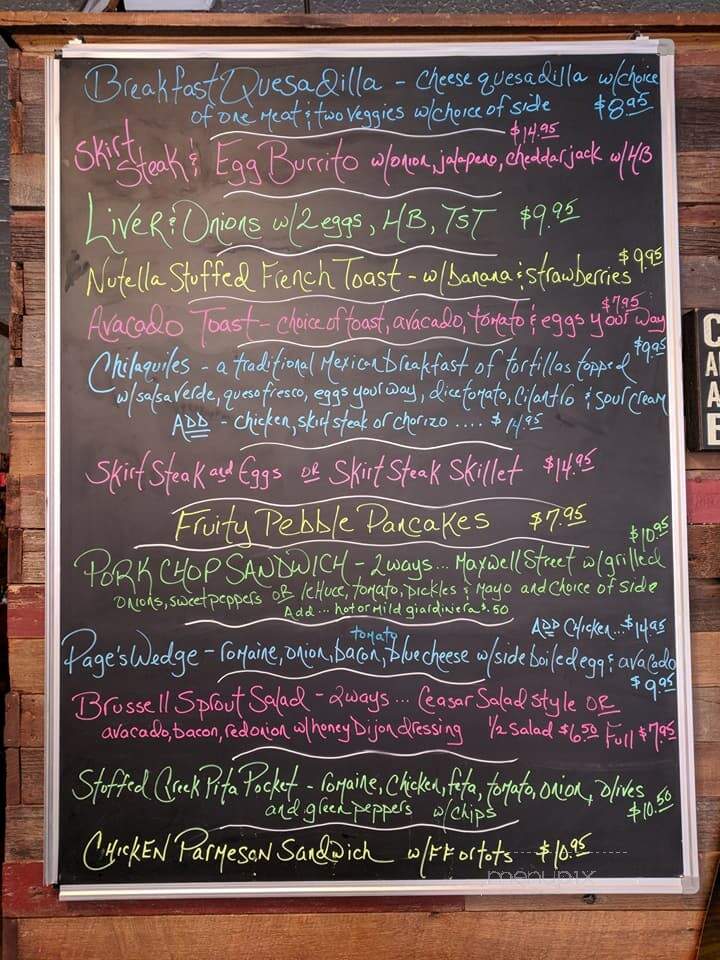 Breakfast Quesadilla - cheese quesadilla w/choice
of one meat & two veggies w/choice of side $8.95
$14.95
Skirt Steak & Egg Burrito w/onion, jalapeno, cheddar jack w/HB
Liver & Onions w/2 eggs, HB, TST $9.95
Nutella Stuffed French Toast - w/banana & strawberries $9.95
Avacado Toast - choice of toast, avacado, tomato & eggs your way $7.95
Chilaquiles - a traditional Mexican breakfast of tortillas topped $9.95
w/salsa verde, queso fresco, eggs your way, dice tomato, cilantro & sour cream
ADD - chicken, skirt steak or chorizo .... $14.95
Skirt Steak and Eggs OR Skirt Steak Skillet $14.95
Fruity Pebble Pancakes $7.95
$10.95
PORK CHOP SANDWICH - 2 ways... Maxwell Street w/grilled
onions, sweet peppers OR lettuce, tomato, pickles & mayo and choice of side
Add... hot or mild giardiniera $.50
ADD Chicken...$14.95
tomato
Page's Wedge - romaine, onion, bacon, blue cheese w/side boiled egg & avacado
$9.95
Brussell Sprout Salad - 2 ways... Ceasar Salad style OR
avacado, bacon, red onion w/honey Dijon dressing 1/2 Salad $6.50 Full $7.95
Stuffed Greek Pita Pocket - romaine, chicken, feta, tomato, onion, olives
and green peppers w/chips $10.50
Chicken Parmeson Sandwich w/FF or tots $10.95
menupix
C